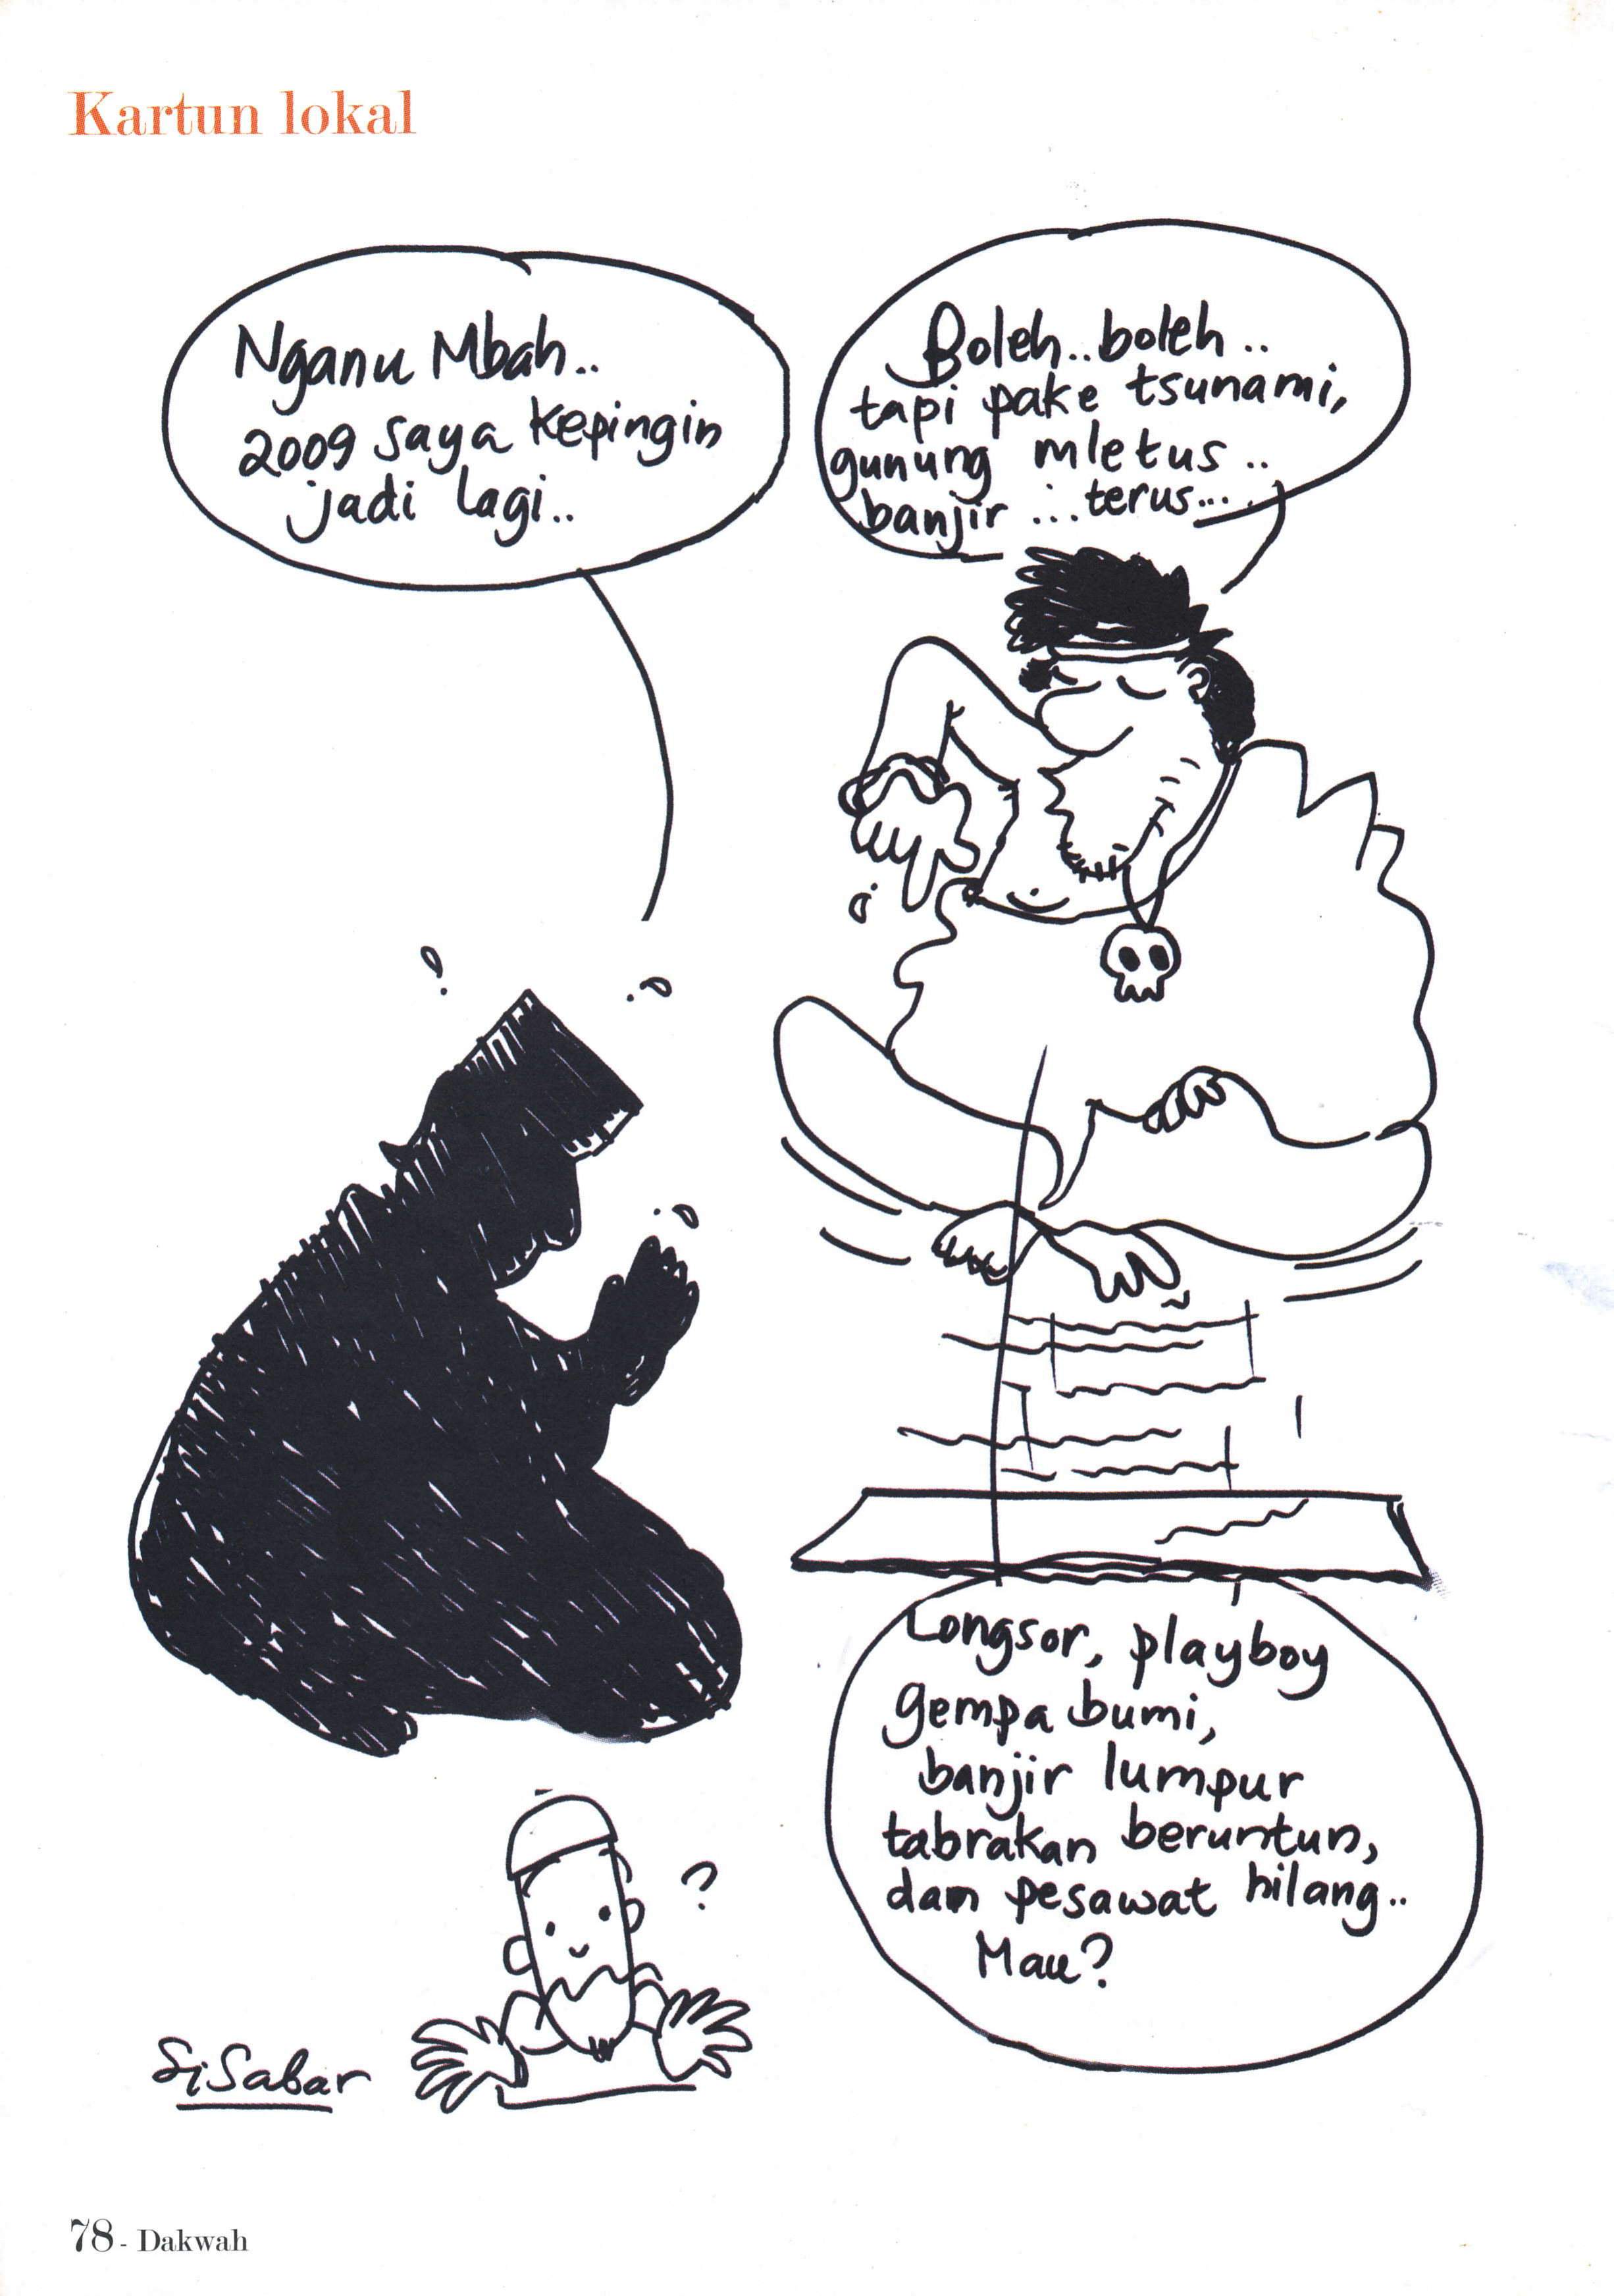 Kartun lokal
Nganu Mbah..
2009 saya kepingin
jadi lagi..
Boleh..boleh..
tapi pake tsunami,
gunung mletus..
banjir...terus....
Longsor, playboy
gempa bumi,
banjir lumpur
tabrakan beruntun,
dan pesawat hilang..
Mau?
?
SiSabar
78 - Dakwah